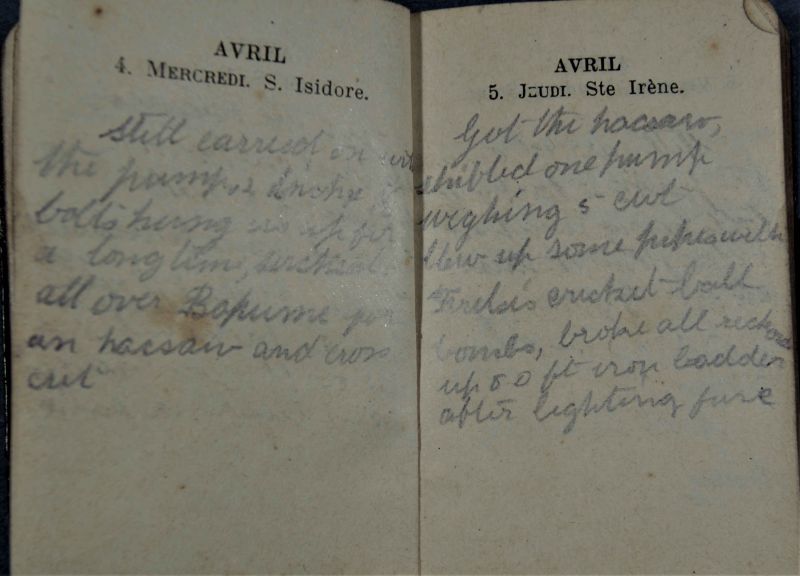 AVRIL
4. MERCREDI. S. Isidore.
Still carried on
the pumps
bolts hung us up for
a long time,
all over Bapume for
an hacsaw and cross
cut
AVRIL
5. JEUDI. Ste Irène.
Got the hacsaw,
one pump
weighing 5 cwt
blew up some pipes with
cricket ball
bombs, broke all records
up 50 ft iron ladder
after lighting fuse